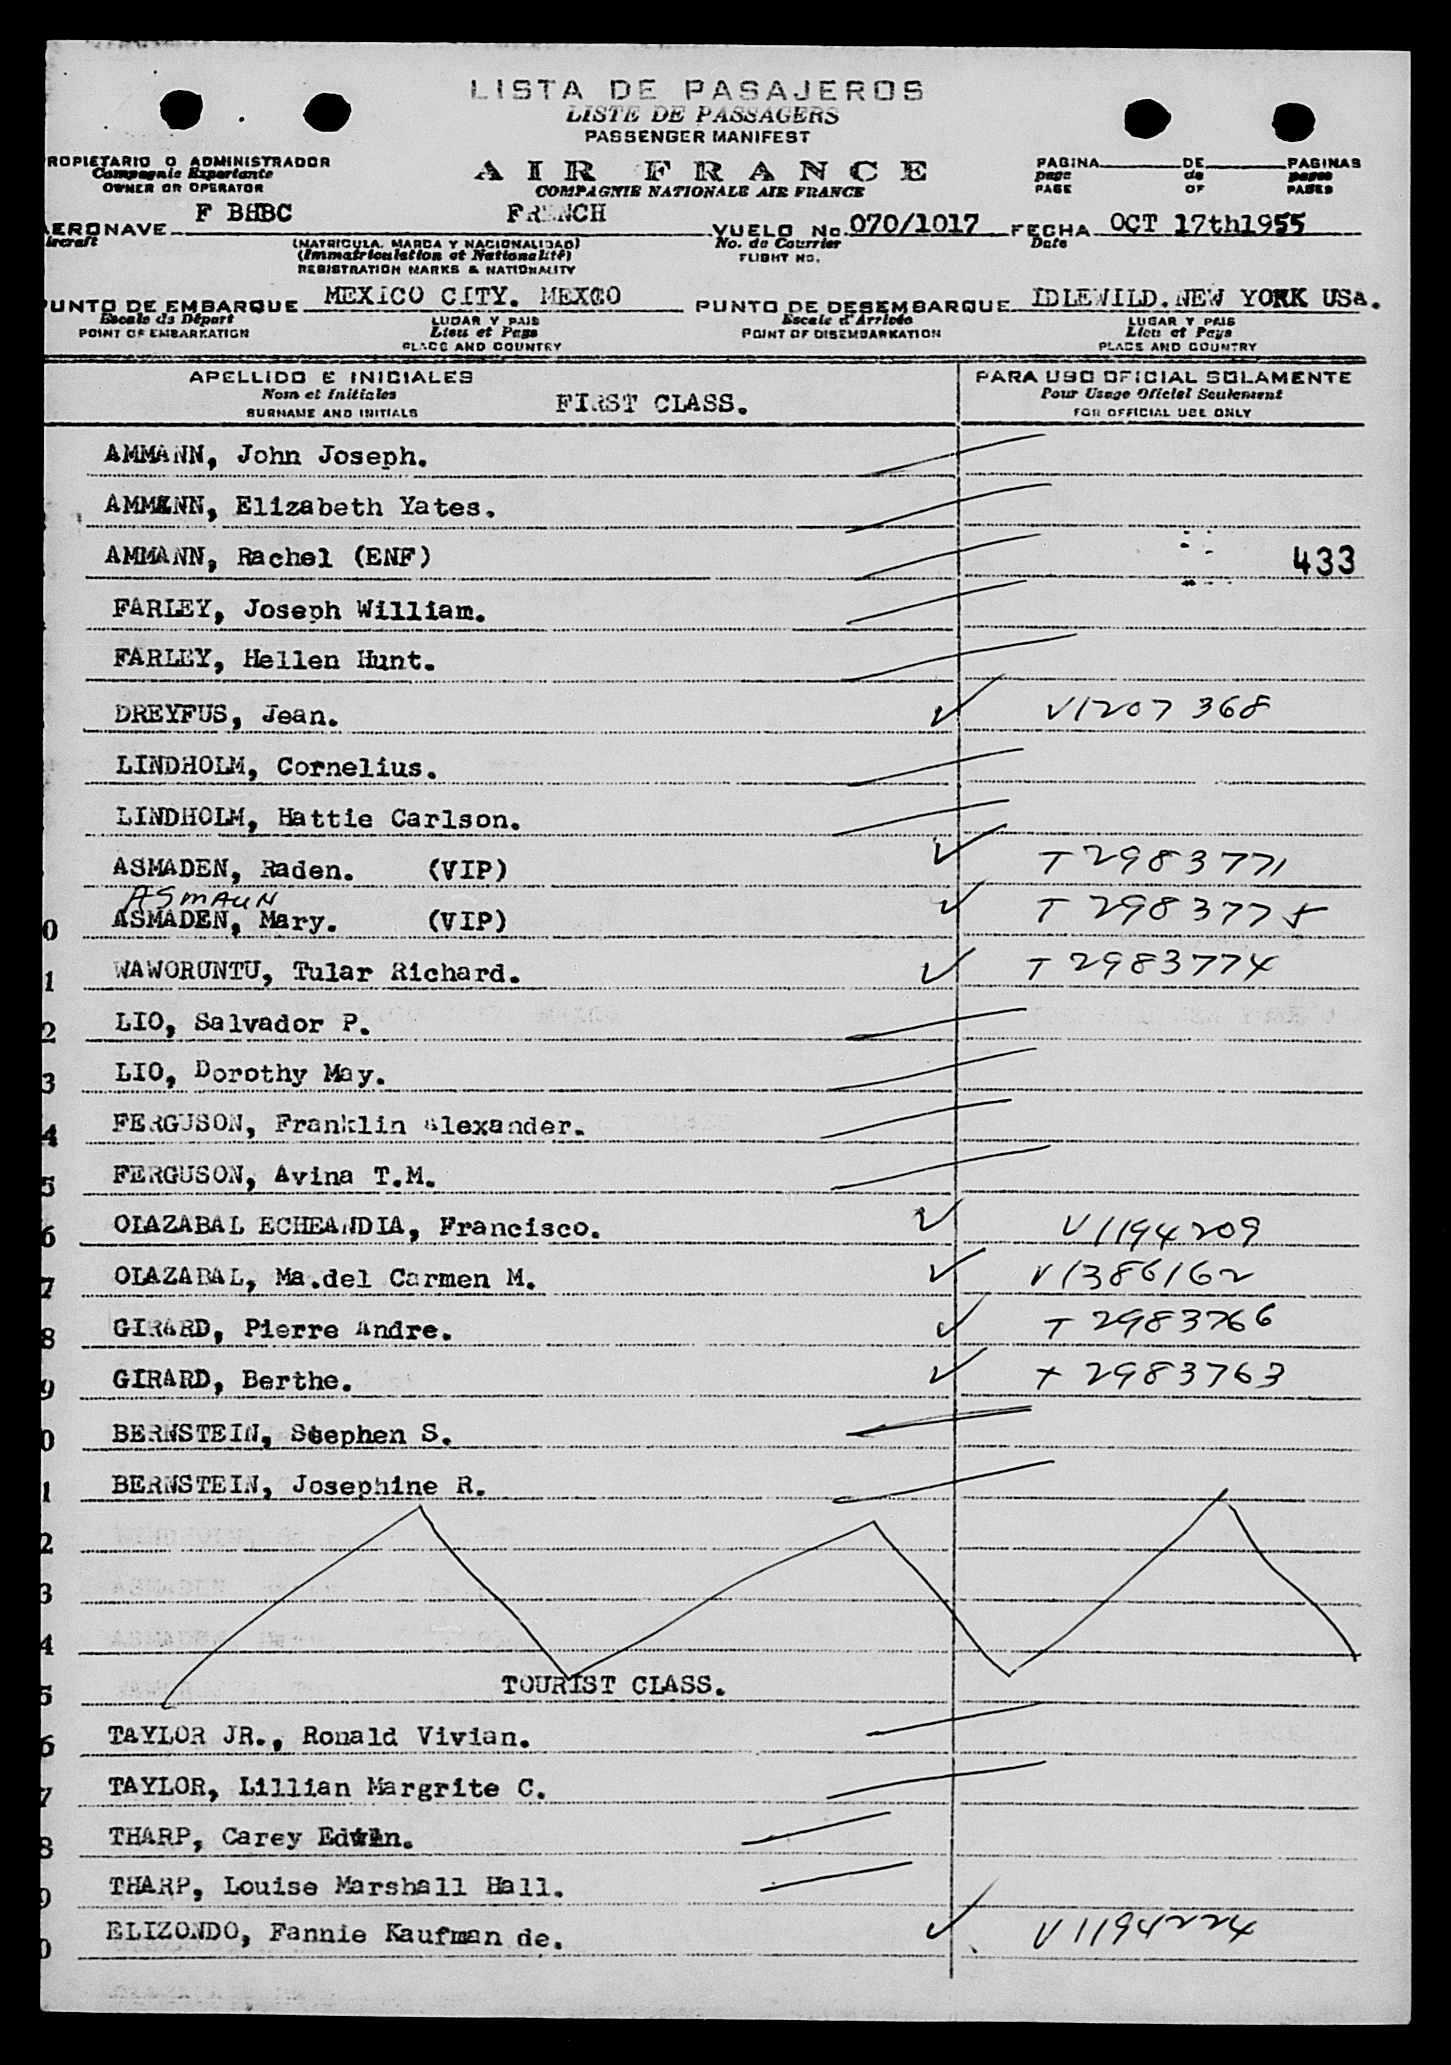 LISTA DE PASAJEROS
LISTE DE PASSAGERS
PASSENGER MANIFEST
ROPIETARIO O ADMINISTRADOR
Compagnie Exportante
OWNER OR OPERATOR
AIR FRANCE
COMPAGNIE NATIONALE AIR FRANCE
PAGINA DE PAGINAS
page de pages
PAGE OF PAGES
AERONAVE F BHBC FRENCH VUELO No. 070/1017 FECHA OCT 17th1955
ircraft (MATRICULA, MARCA Y NACIONALIDAD) No. de Courrier Date
(Immatriculation et Nationalité) FLIGHT NO.
REGISTRATION MARKS & NATIONALITY
PUNTO DE EMBARQUE MEXICO CITY. MEXCO PUNTO DE DESEMBARQUE IDLEWILD.NEW YORK USA.
Escale de Départ LUGAR Y PAIS Escale d'Arrivée LUGAR Y PAIS
POINT OF EMBARKATION Lieu et Pays POINT OF DISEMBARKATION Lieu et Pays
PLACE AND COUNTRY PLACE AND COUNTRY
APELLIDO E INICIALES PARA USO OFICIAL SOLAMENTE
Nom et Initiales FIRST CLASS. Pour Usage Officiel Seulement
SURNAME AND INITIALS FOR OFFICIAL USE ONLY
AMMANN, John Joseph.
AMMANN, Elizabeth Yates.
AMMANN, Rachel (ENF) 433
FARLEY, Joseph William.
FARLEY, Hellen Hunt.
DREYFUS, Jean. ✓ V1207 368
LINDHOLM, Cornelius.
LINDHOLM, Hattie Carlson.
ASMADEN, Raden. (VIP) ✓ T 2983771
ASMAUN
0 ASMADEN, Mary. (VIP) ✓ T 298377
1 WAWORUNTU, Tular Richard. ✓ T 2983774
2 LIO, Salvador P.
3 LIO, Dorothy May.
4 FERGUSON, Franklin Alexander.
5 FERGUSON, Avina T.M.
6 OLAZABAL ECHEANDIA, Francisco. ✓ V1194209
7 OLAZABAL, Ma.del Carmen M. ✓ V1386162
8 GIRARD, Pierre Andre. ✓ T 2983766
9 GIRARD, Berthe. ✓ T 2983763
0 BERNSTEIN, Stephen S.
1 BERNSTEIN, Josephine R.
2
3
4
5 TOURIST CLASS.
6 TAYLOR JR., Ronald Vivian.
7 TAYLOR, Lillian Margrite C.
8 THARP, Carey Edwin.
9 THARP, Louise Marshall Hall.
0 ELIZONDO, Fannie Kaufman de. ✓ V1194224